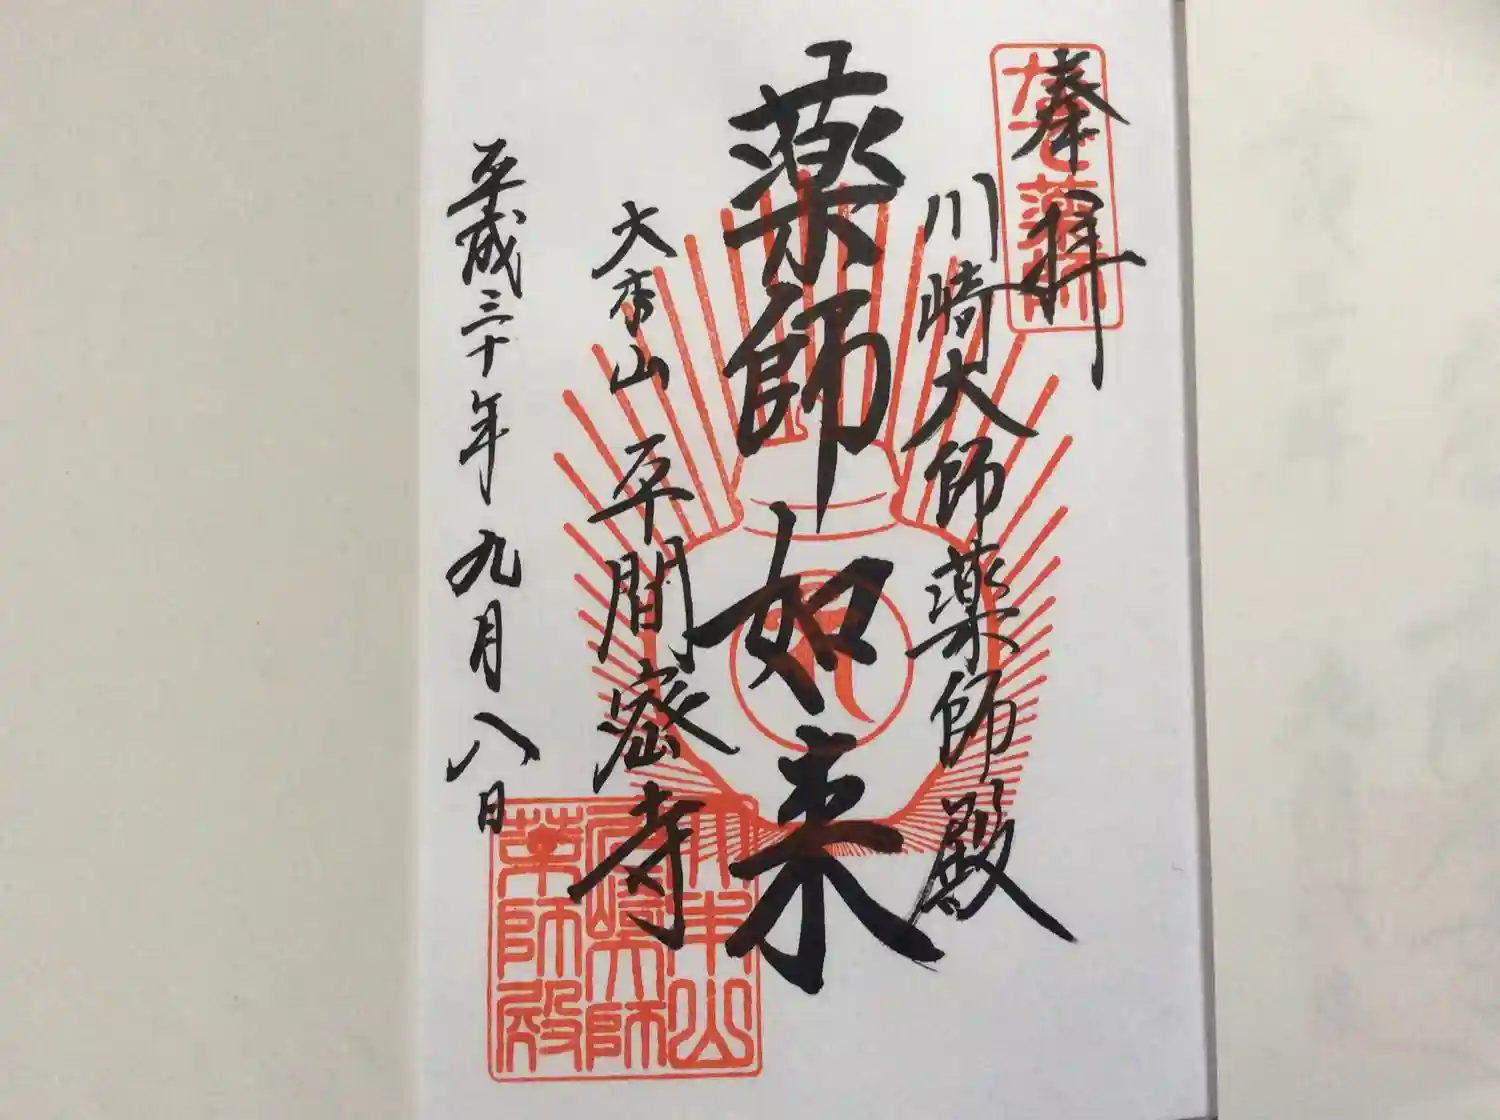 奉拝
川崎大師薬師殿
薬師如来
大本山 平間密寺
平成三十年九月八日
なで薬師
大本山
川崎大師
薬師殿